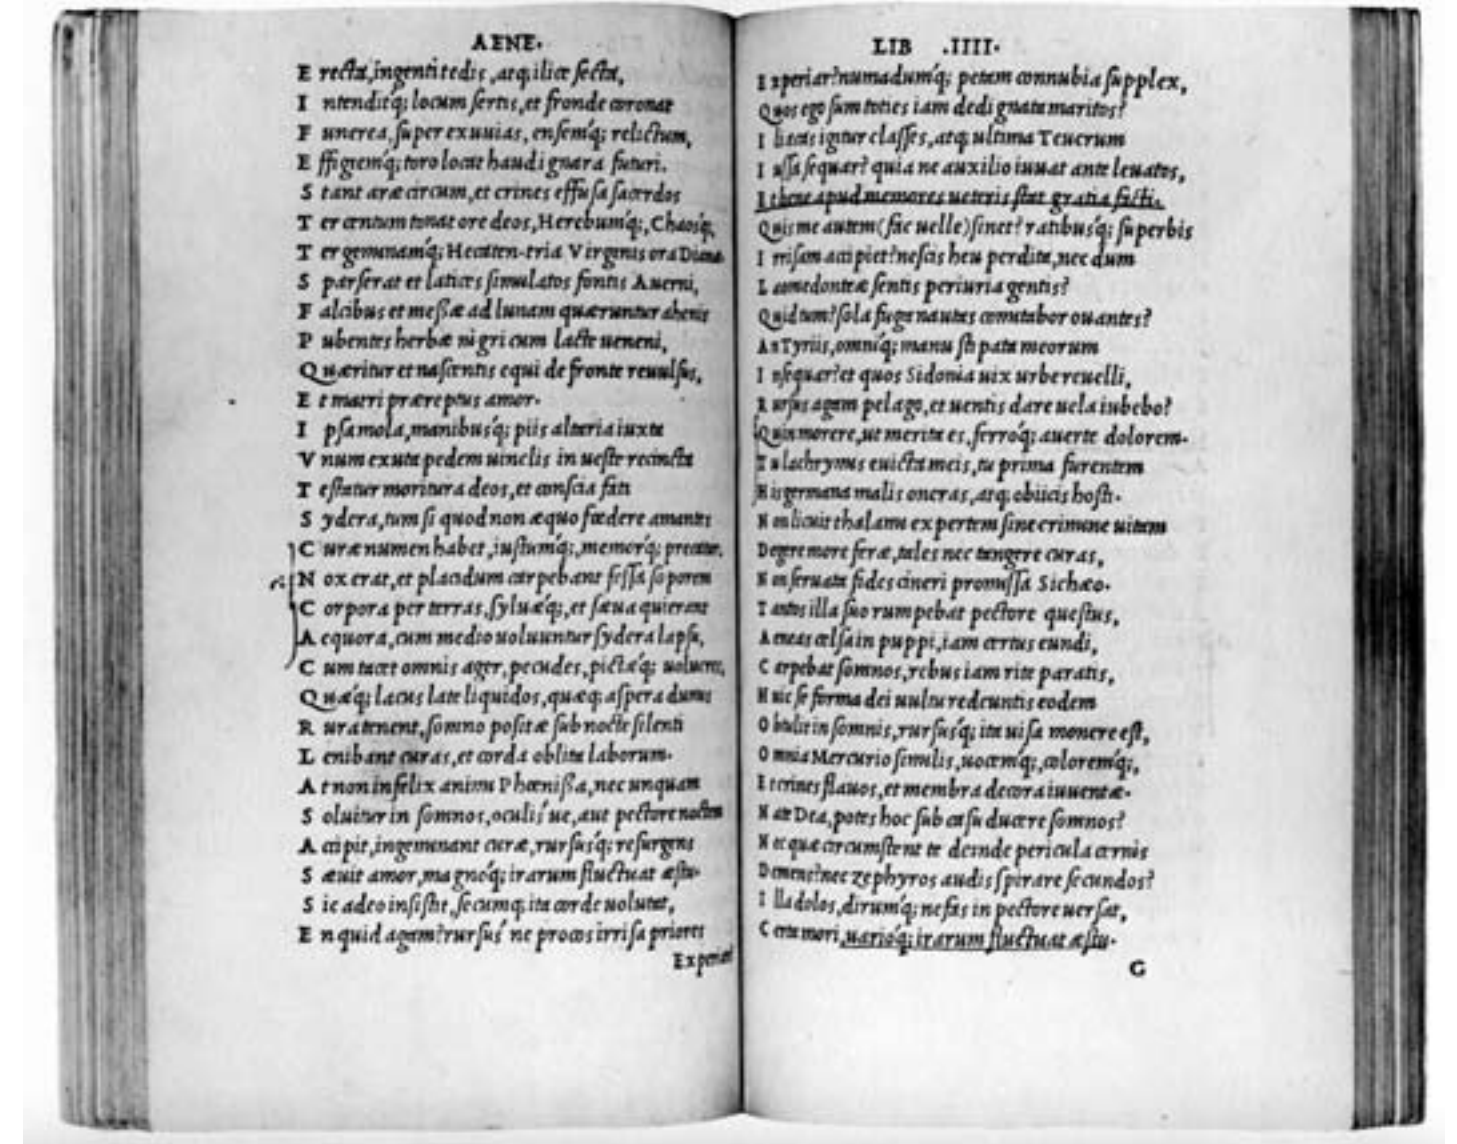 AENE.
E recta, ingenti tedis, atq; ilice secta,
I ntenditq́; locum sertis, et fronde coronat
F unerea, super exuuias, ensemq́; relictum,
E ffigiemq́; toro locat haud ignara futuri.
S tant aræ circum, et crines effusa sacerdos
T er centum tonat ore deos, Herebumq́;, Chaosq́;
T ergeminamq́; Hecaten, tria Virginis ora Dianæ.
S parserat et latices simulatos fontis Auerni,
F alcibus et messæ ad lunam quæruntur ahenis
P ubentes herbæ nigri cum lacte ueneni,
Q uæritur et nascentis equi de fronte reuulsus,
E t matri præreptus amor.
I psa mola, manibusq́; piis altaria iuxta
V num exuta pedem uinclis in ueste recincta
T estatur moritura deos, et conscia fati
S ydera, tum si quod non æquo fœdere amantes
C uræ numen habet, iustumq́;, memorq́; precatur.
N ox erat, et placidum carpebant fessa soporem
C orpora per terras, syluæq́;, et sæua quierant
A equora, cum medio uoluuntur sydera lapsu,
C um tacet omnis ager, pecudes, pictæq́; uolucres,
Q uæq́; lacus late liquidos, quæq; aspera dumis
R ura tenent, somno positæ sub nocte silenti
L enibant curas, et corda oblita laborum.
A t non infelix animi Phœnissa, nec unquam
S oluitur in somnos, oculis´ue, aut pectore noctem
A ccipit, ingeminant curæ, rursusq́; resurgens
S æuit amor, magnoq́; irarum fluctuat æstu.
S ic adeo insistit, secumq; ita corde uolutat,
E n quid agam? rursus´ne procos irrisa priores
Experiar
LIB .IIII.
E xperiar? numadumq́; petam connubia supplex,
Q uos ego sum toties iam dedignata maritos?
I liacas igitur classes, atq; ultima Teucrum
I ussa sequar? quia ne auxilio iuuat ante leuatos,
E t bene apud memores ueteris stat gratia facti.
Q uis me autem (fac uelle) sinet? ratibusq́; superbis
I rrisam accipiet? nescis heu perdita, nec dum
L aomedonteæ sentis periuria gentis?
Q uid tum? sola fuga nautas comitabor ouantes?
A n Tyriis, omniq́; manu stipata meorum
I nsequar? et quos Sidonia uix urbe reuelli,
R ursus agam pelago, et uentis dare uela iubebo?
Q uin morere, ut merita es, ferroq́; auerte dolorem.
T u lachrymis euicta meis, tu prima furentem
H is germana malis oneras, atq; obiicis hosti.
N on licuit thalami expertem sine crimine uitam
D egere more feræ, tales nec tangere curas,
N on seruata fides cineri promissa Sichæo.
T antos illa suo rumpebat pectore questus,
A eneas celsa in puppi, iam certus eundi,
C arpebat somnos, rebus iam rite paratis,
H uic se forma dei uultu redeuntis eodem
O btulit in somnis, rursusq́; ita uisa monere est,
O mnia Mercurio similis, uocemq́;, coloremq́;,
E t crines flauos, et membra decora iuuentæ.
N ate Dea, potes hoc sub casu ducere somnos?
N ec quæ circumstent te deinde pericula cernis
D emens? nec zephyros audis spirare secundos?
I lla dolos, dirumq́; nefas in pectore uersat,
C erta mori, uarioq́; irarum fluctuat æstu.
G